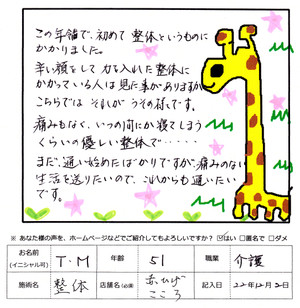 この年齢で、初めて整体というものに
かかりました。
辛い顔をして力を入れた整体に
かかっている人は見た事がありますが
こちらでは それが うその様です。
痛みもなく、いつの間にか寝てしまう
くらいの優しい整体で・・・・・
まだ、通い始めたばかりですが、痛みのない
生活を送りたいので、これからも通いたい
です。
※ あなた様の声を、ホームページなどでご紹介してもよろしいですか？ ☑はい □匿名で □ダメ
お名前 (イニシャル可) T.M 年齢 51 職業 介護
施術名 整体 店舗名(必須) 赤ひげ こころ 記入日 22年12月2日